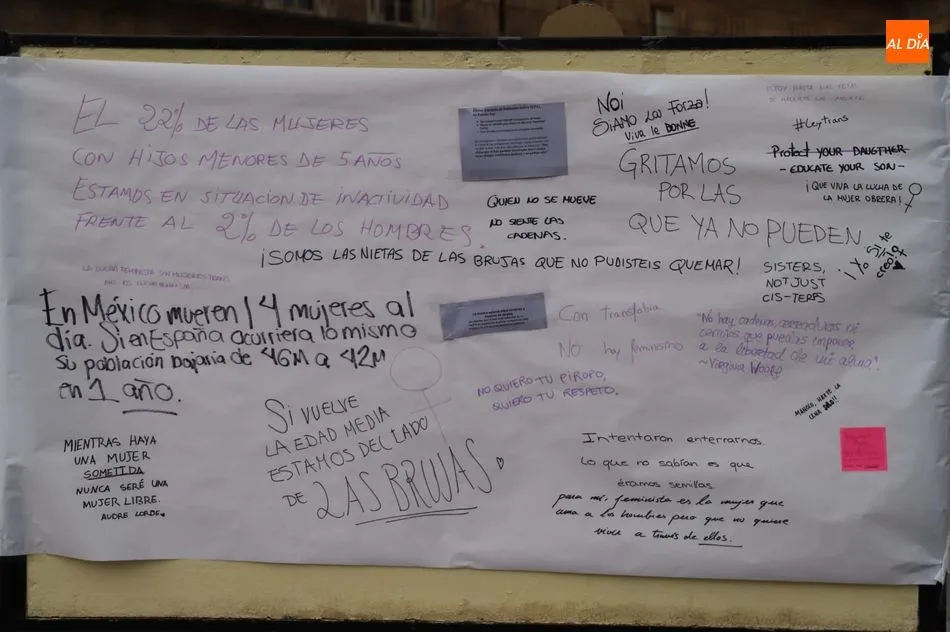 AL DÍA
EL 22% DE LAS MUJERES
CON HIJOS MENORES DE 5 AÑOS
ESTAMOS EN SITUACION DE INACTIVIDAD
FRENTE AL 2% DE LOS HOMBRES.
NOI
SIAMO LA FORZA!
VIVA LE DONNE
GRITAMOS
POR LAS
QUE YA NO PUEDEN
#Leytrans
Protect YOUR DAUGTHER
- EDUCATE YOUR SON -
¡QUE VIVA LA LUCHA DE
LA MUJER OBRERA!
QUIEN NO SE MUEVE
NO SIENTE LAS
CADENAS.
¡SOMOS LAS NIETAS DE LAS BRUJAS QUE NO PUDISTEIS QUEMAR!
¡YO SÍ TE
CREO!
SISTERS,
NOT JUST
CIS-TERFS
LA LUCHA FEMINISTA SIN MUJERES TRANS
NO ES LUCHA
En México mueren 14 mujeres al
día. Si en España ocurriera lo mismo
su población bajaría de 46M a 42M
en 1 año.
Con Transfobia
NO hay feminismo
"No hay cadenas, cerraduras ni
cerrojos que puedas imponer
a la libertad de mi alma".
~Virginia Woolf
NO QUIERO TU PIROPO,
QUIERO TU RESPETO.
MANOLO, HAZTE LA
CENA SOLO!!
SI VUELVE
LA EDAD MEDIA
ESTAMOS DEL LADO
DE LAS BRUJAS
MIENTRAS HAYA
UNA MUJER
SOMETIDA
NUNCA SERÉ UNA
MUJER LIBRE.
AUDRE LORDE
Intentaron enterrarnos.
Lo que no sabían es que
éramos semillas.
para mí, feminista es la mujer que
ama a los hombres pero que no quiere
vivir a través de ellos.